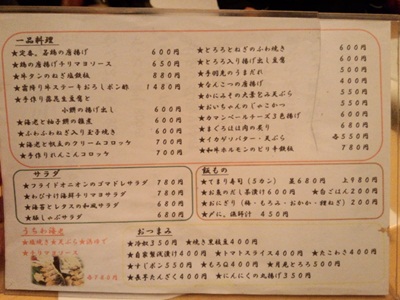 一品料理
★定番、若鶏の唐揚げ 600円
★鶏の唐揚げチリマヨソース 650円
★牛タンのねぎ塩鉄板 880円
★霜降り牛ステーキおろしポン酢 1480円
★手作り
小鯛の揚げ出し 700円
★海老と柚子鯛の雑煮 600円
★ふわふわねぎ入り玉子焼き 600円
★海老と帆立のクリームコロッケ 700円
★手作りれんこんコロッケ 700円
★とろろとねぎのふわ焼き 600円
★とろろ入り揚げ出し豆腐 600円
★手羽先のうまだれ 500円
★なんこつの唐揚げ 500円
★かにみその大葉包み天ぷら 550円
★おいちゃんの
★カマンベールチーズ3色揚げ 600円
★まぐろほほ肉の炙り 680円
★イカゲソバター・天ぷら 各550円
★和牛ホルモンのピリ辛鉄板 700円
サラダ
★フライドオニオンのゴマドレサラダ 780円
★わさび
★海苔とレタスの和風サラダ 680円
★豚しゃぶサラダ 680円
飯もの
★てまり寿司(5カン) 並680円 上980円
★お魚のだし茶漬け600円 ★白ごはん200円
★おにぎり(梅・もろみ・おかか・
★〆に、漁師汁 450円
うちわ海老
★塩焼き★天ぷら★
各740円
おつまみ
★冷奴350円 ★焼き
★自家製浅漬け400円 ★トマトスライス400円 ★たこわさ400円
★すじポン550円 ★もろきゅう400円 ★月見とろろ500円
★長芋たんざく400円 ★にんにくの丸揚げ350円